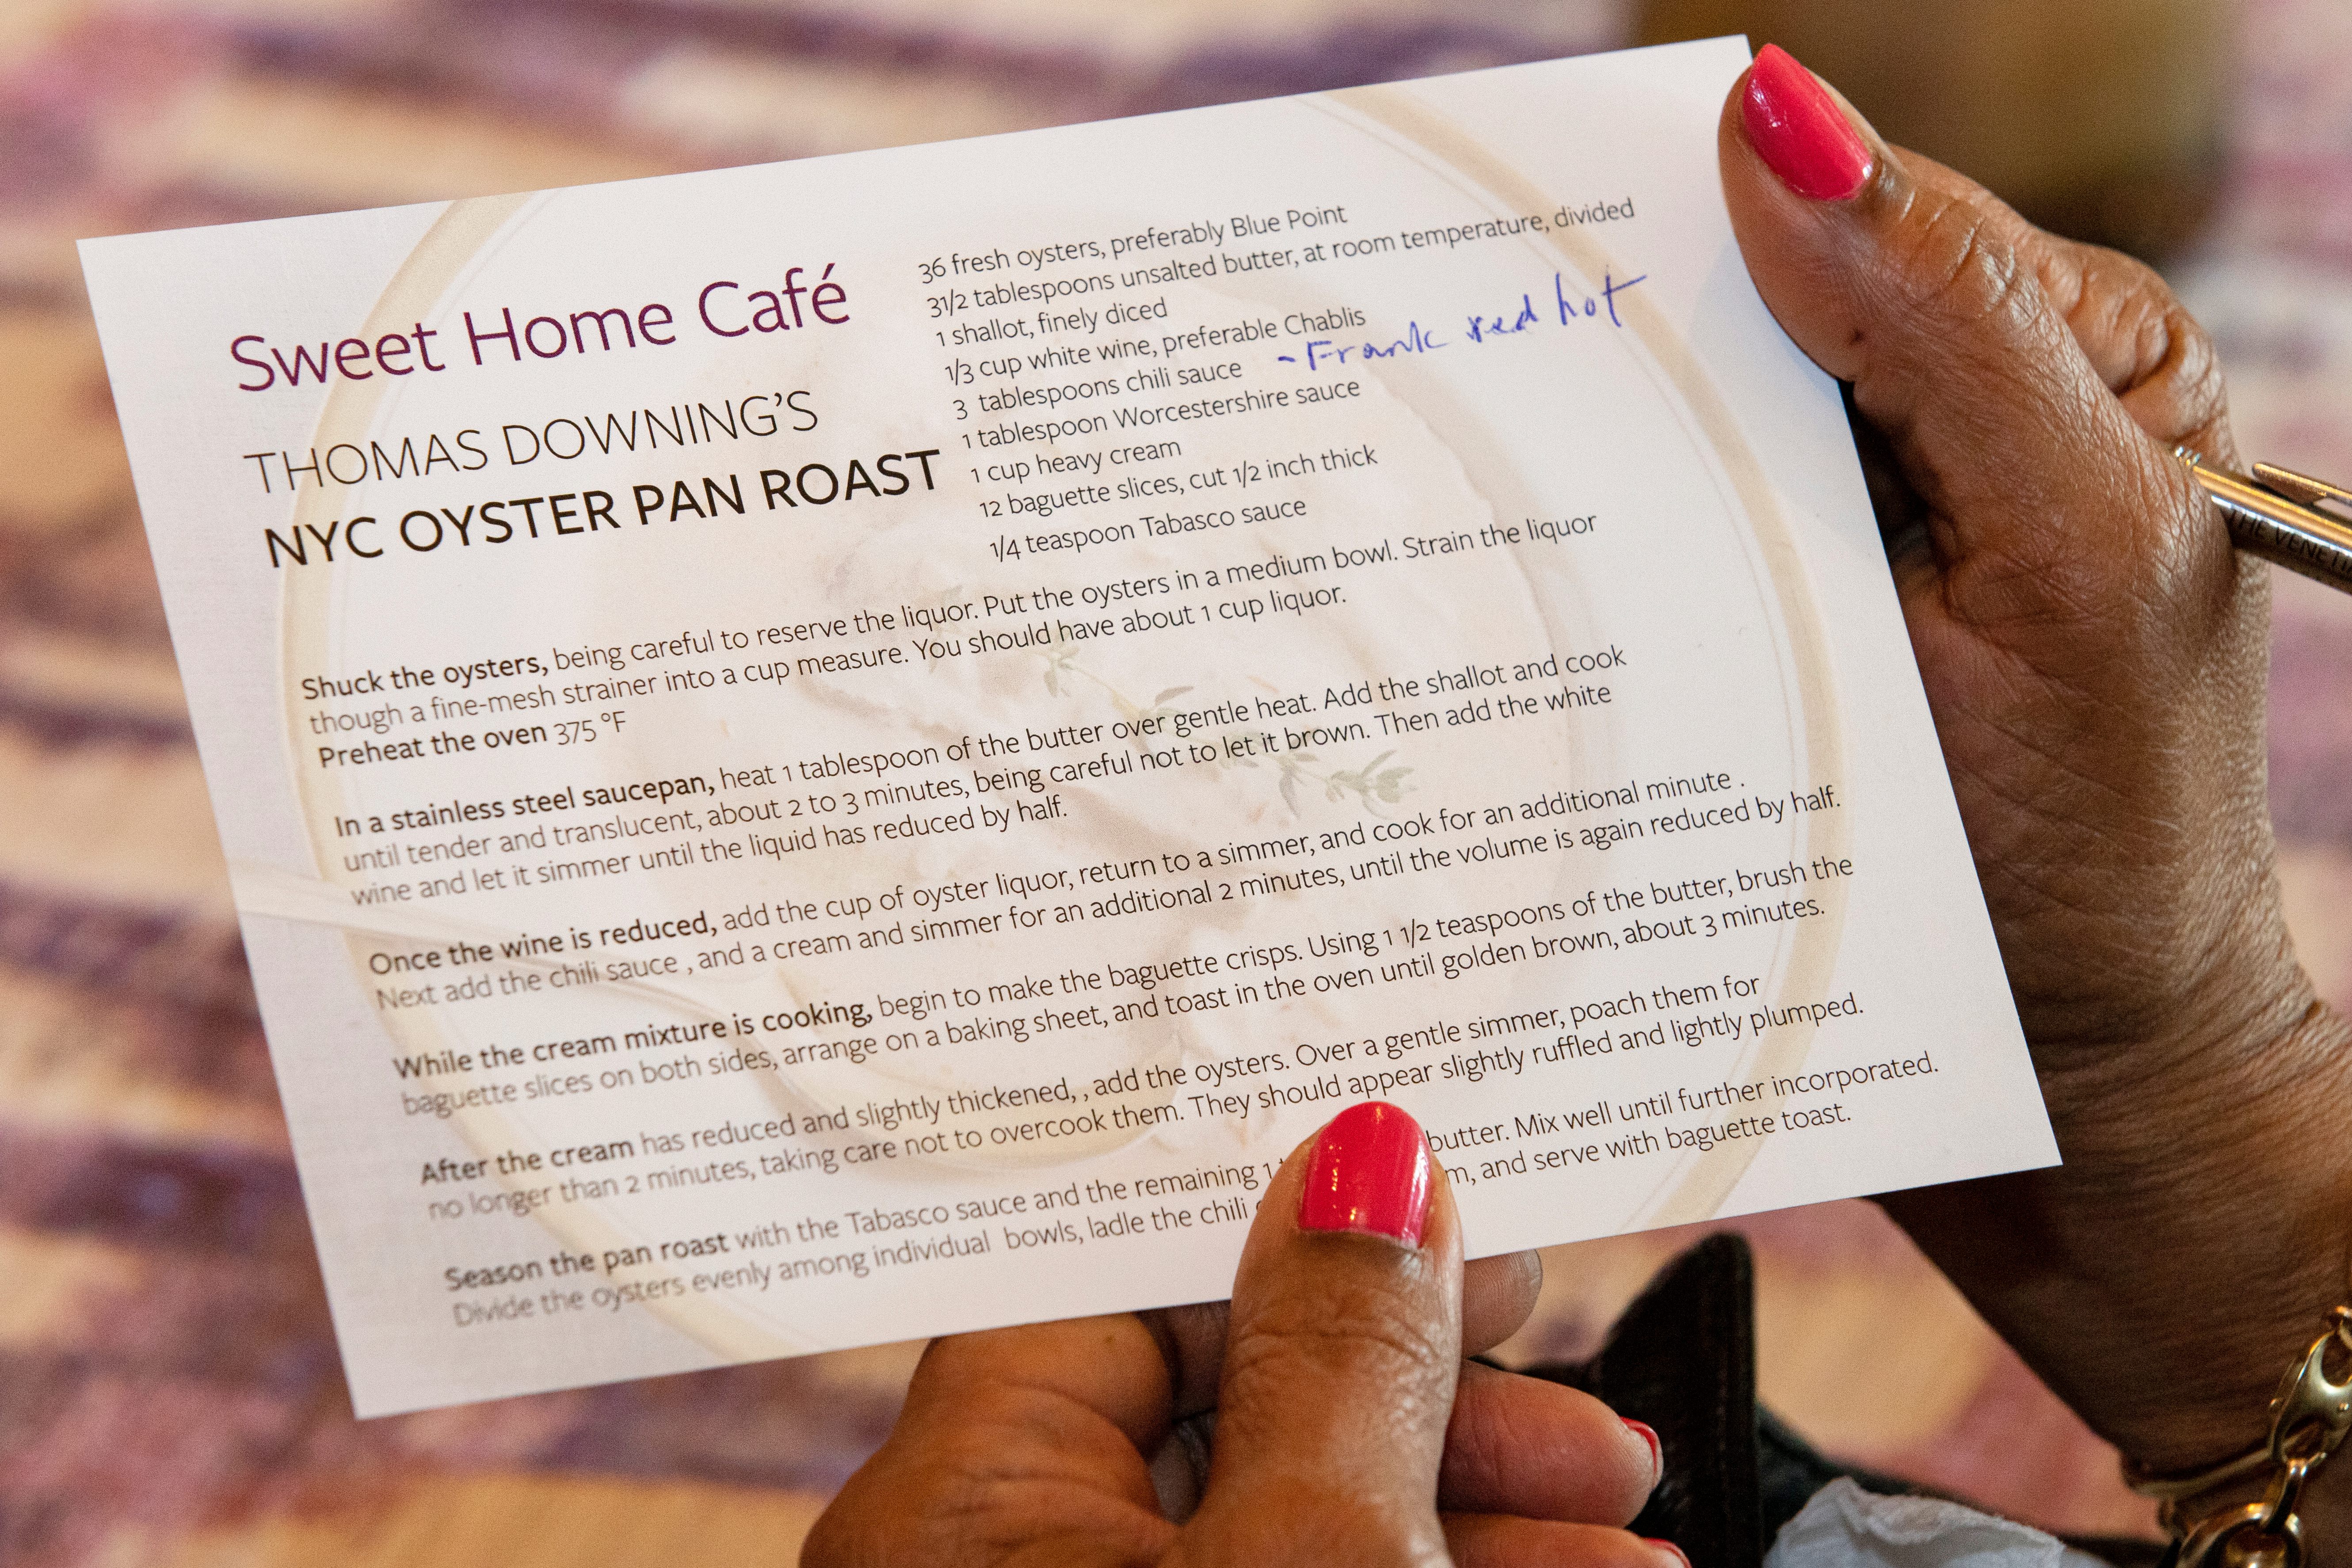 Sweet Home Café
THOMAS DOWNING'S
NYC OYSTER PAN ROAST
36 fresh oysters, preferably Blue Point
31/2 tablespoons unsalted butter, at room temperature, divided
1 shallot, finely diced
1/3 cup white wine, preferable Chablis
3 tablespoons chili sauce - Frank red hot
1 tablespoon Worcestershire sauce
1 cup heavy cream
12 baguette slices, cut 1/2 inch thick
1/4 teaspoon Tabasco sauce
Shuck the oysters, being careful to reserve the liquor. Put the oysters in a medium bowl. Strain the liquor
though a fine-mesh strainer into a cup measure. You should have about 1 cup liquor.
Preheat the oven 375 °F
In a stainless steel saucepan, heat 1 tablespoon of the butter over gentle heat. Add the shallot and cook
until tender and translucent, about 2 to 3 minutes, being careful not to let it brown. Then add the white
wine and let it simmer until the liquid has reduced by half.
Once the wine is reduced, add the cup of oyster liquor, return to a simmer, and cook for an additional minute .
Next add the chili sauce , and a cream and simmer for an additional 2 minutes, until the volume is again reduced by half.
While the cream mixture is cooking, begin to make the baguette crisps. Using 1 1/2 teaspoons of the butter, brush the
baguette slices on both sides, arrange on a baking sheet, and toast in the oven until golden brown, about 3 minutes.
After the cream has reduced and slightly thickened, , add the oysters. Over a gentle simmer, poach them for
no longer than 2 minutes, taking care not to overcook them. They should appear slightly ruffled and lightly plumped.
Season the pan roast with the Tabasco sauce and the remaining 1 butter. Mix well until further incorporated.
Divide the oysters evenly among individual bowls, ladle the chili and serve with baguette toast.
THE